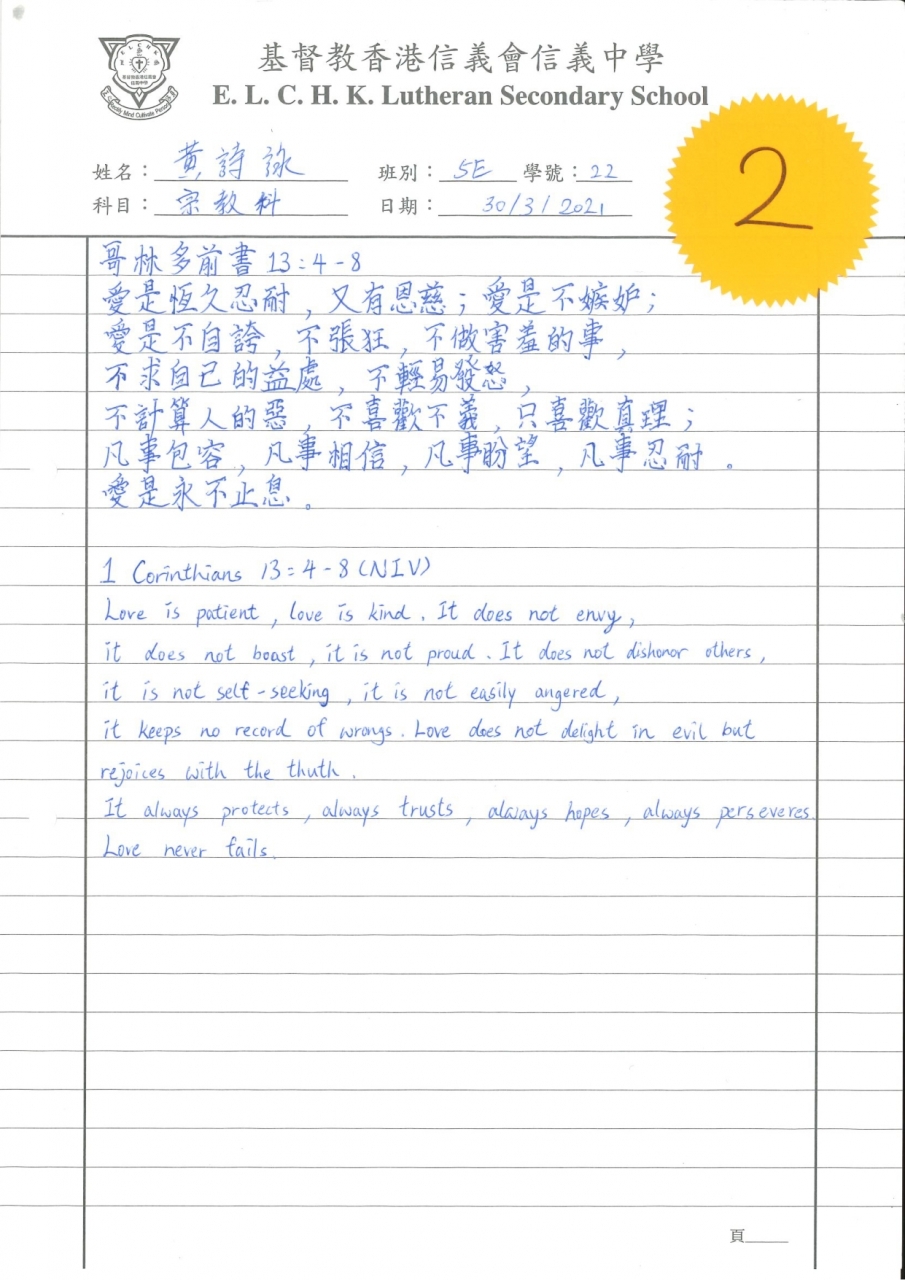 基督教香港信義會信義中學
E. L. C. H. K. Lutheran Secondary School
姓名：黃詩詠 班別：5E 學號：22
科目：宗教科 日期：30/3/2021
2
哥林多前書 13:4-8
愛是恆久忍耐，又有恩慈；愛是不嫉妒；
愛是不自誇，不張狂，不做害羞的事，
不求自己的益處，不輕易發怒，
不計算人的惡，不喜歡不義，只喜歡真理；
凡事包容，凡事相信，凡事盼望，凡事忍耐。
愛是永不止息。
1 Corinthians 13:4-8 (NIV)
Love is patient, love is kind. It does not envy,
it does not boast, it is not proud. It does not dishonor others,
it is not self-seeking, it is not easily angered,
it keeps no record of wrongs. Love does not delight in evil but
rejoices with the thuth.
It always protects, always trusts, always hopes, always perseveres.
Love never fails.
頁